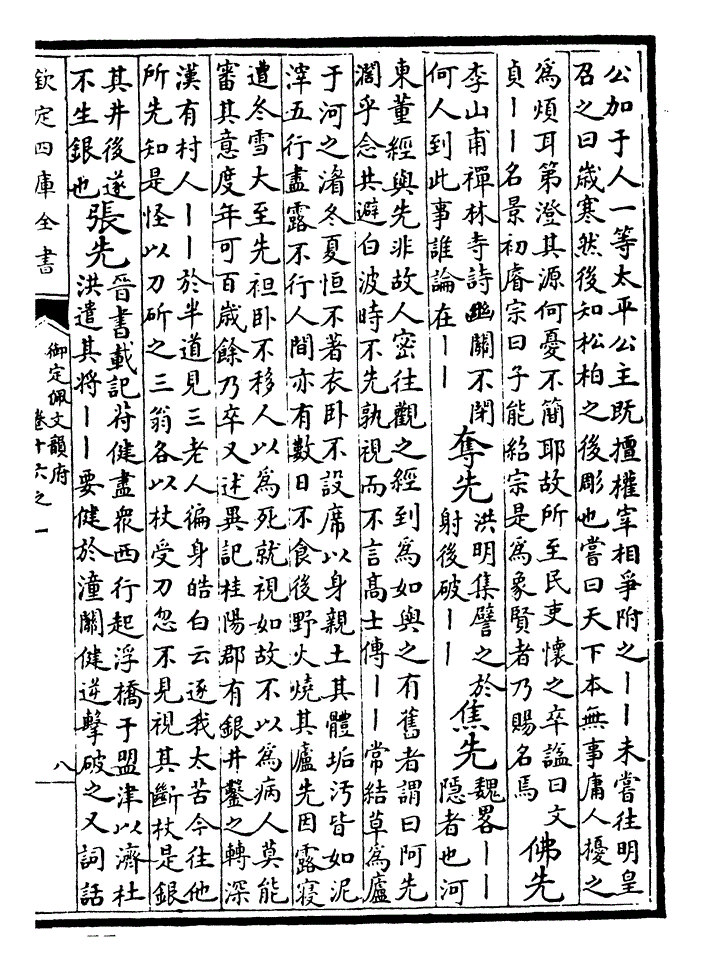 公加于人一等太平公主既擅權宰相爭附之丨丨未嘗往明皇
召之曰歲寒然後知松柏之後彫也嘗曰天下本無事庸人擾之
爲煩耳第澄其源何憂不簡耶故所至民吏懷之卒諡曰文
貞丨丨名景初睿宗曰子能紹宗是爲象賢者乃賜名焉
佛先
李山甫禪林寺詩幽關不閉
何人到此事誰論在丨丨
奪先
洪明集譬之於
射後破丨丨
焦先
魏畧丨丨
隱者也河
東董經與先非故人密往觀之經到爲如與之有舊者謂曰阿先
濶乎念共避白波時不先孰視而不言髙士傳丨丨常結草爲廬
于河之渚冬夏恒不著衣卧不設席以身親土其體垢汚皆如泥
滓五行盡露不行人間亦有數日不食後野火燒其廬先因露寢
遭冬雪大至先袒卧不移人以爲死就視如故不以爲病人莫能
審其意度年可百歲餘乃卒又述異記桂陽郡有銀井鑿之轉深
漢有村人丨丨於半道見三老人徧身皓白云逐我太苦今往他
所先知是怪以刀斫之三翁各以杖受刀忽不見視其斷杖是銀
其井後遂
不生銀也
張先
晉書載記苻健盡衆西行起浮橋于盟津以濟杜
洪遣其將丨丨要健於潼關健逆擊破之又詞話
欽定四庫全書
御定佩文韻府
卷十六之一
八